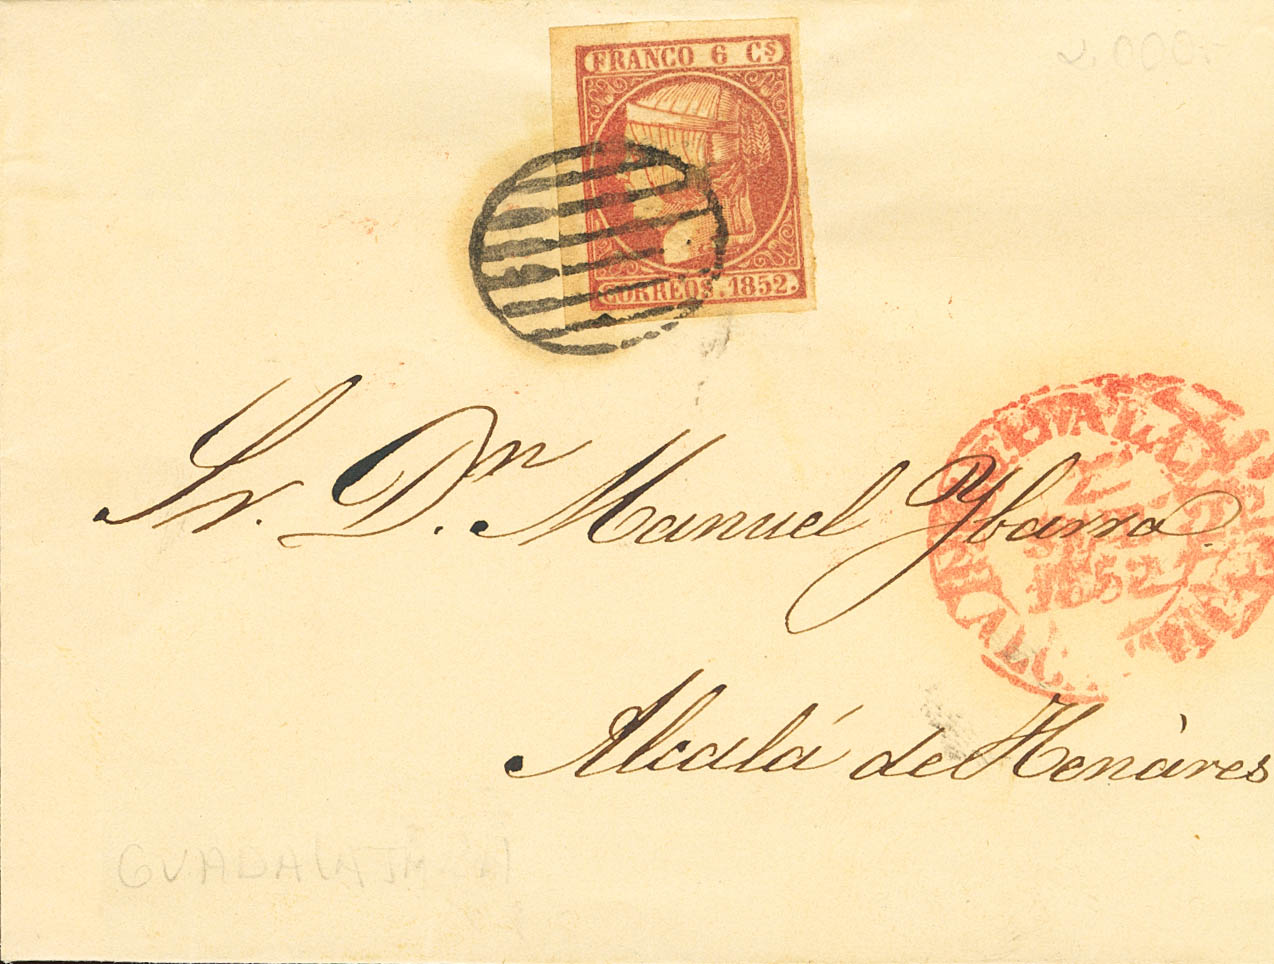 FRANCO 6 Cs
CORREOS. 1852.
Sr. Dn. Manuel Ybarra.
1852
Alcalá de Henàres
GUADALAJARA